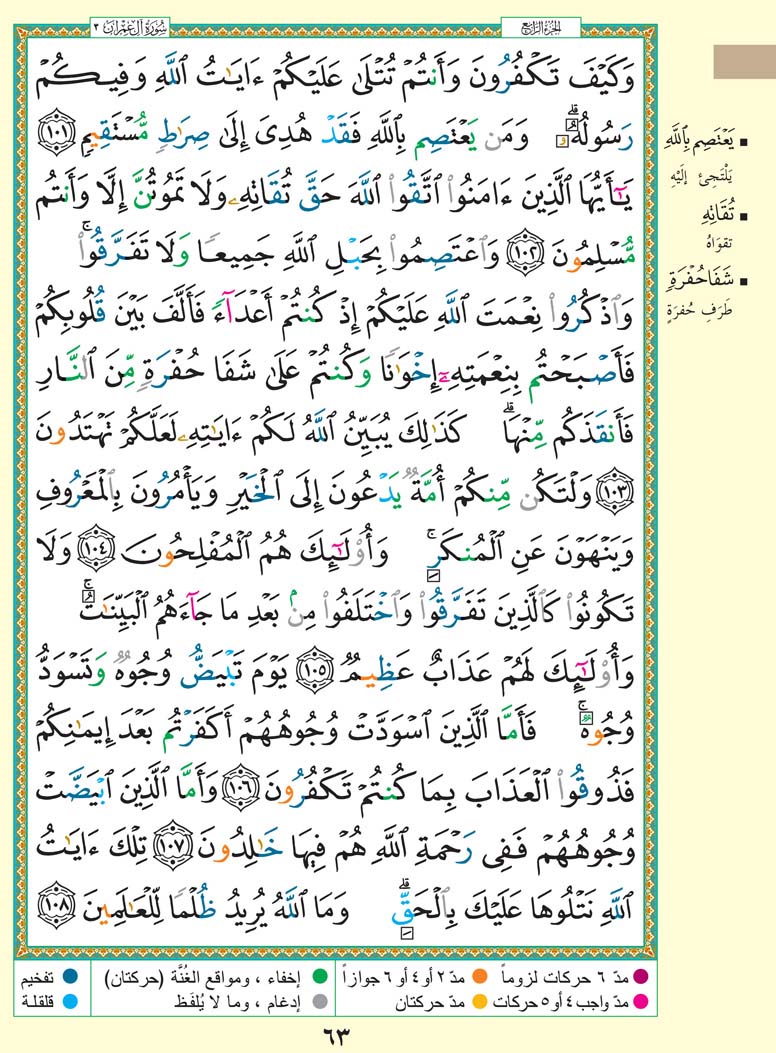 سُورَةُ آلِ عِمْرَان ٣
الجُزْءُ الرَّابِع
وَكَيْفَ تَكْفُرُونَ وَأَنتُمْ تُتْلَىٰ عَلَيْكُمْ ءَايَٰتُ ٱللَّهِ وَفِيكُمْ
رَسُولُهُۥ ۗ وَمَن يَعْتَصِم بِٱللَّهِ فَقَدْ هُدِىَ إِلَىٰ صِرَٰطٍ مُّسْتَقِيمٍ ١٠١
يَٰٓأَيُّهَا ٱلَّذِينَ ءَامَنُوا۟ ٱتَّقُوا۟ ٱللَّهَ حَقَّ تُقَاتِهِۦ وَلَا تَمُوتُنَّ إِلَّا وَأَنتُم
مُّسْلِمُونَ ١٠٢ وَٱعْتَصِمُوا۟ بِحَبْلِ ٱللَّهِ جَمِيعًا وَلَا تَفَرَّقُوا۟ ۚ
وَٱذْكُرُوا۟ نِعْمَتَ ٱللَّهِ عَلَيْكُمْ إِذْ كُنتُمْ أَعْدَآءً فَأَلَّفَ بَيْنَ قُلُوبِكُمْ
فَأَصْبَحْتُم بِنِعْمَتِهِۦٓ إِخْوَٰنًا وَكُنتُمْ عَلَىٰ شَفَا حُفْرَةٍ مِّنَ ٱلنَّارِ
فَأَنقَذَكُم مِّنْهَا ۗ كَذَٰلِكَ يُبَيِّنُ ٱللَّهُ لَكُمْ ءَايَٰتِهِۦ لَعَلَّكُمْ تَهْتَدُونَ
١٠٣ وَلْتَكُن مِّنكُمْ أُمَّةٌ يَدْعُونَ إِلَى ٱلْخَيْرِ وَيَأْمُرُونَ بِٱلْمَعْرُوفِ
وَيَنْهَوْنَ عَنِ ٱلْمُنكَرِ ۚ وَأُو۟لَٰٓئِكَ هُمُ ٱلْمُفْلِحُونَ ١٠٤ وَلَا
تَكُونُوا۟ كَٱلَّذِينَ تَفَرَّقُوا۟ وَٱخْتَلَفُوا۟ مِنۢ بَعْدِ مَا جَآءَهُمُ ٱلْبَيِّنَٰتُ ۚ
وَأُو۟لَٰٓئِكَ لَهُمْ عَذَابٌ عَظِيمٌ ١٠٥ يَوْمَ تَبْيَضُّ وُجُوهٌ وَتَسْوَدُّ
وُجُوهٌ ۚ فَأَمَّا ٱلَّذِينَ ٱسْوَدَّتْ وُجُوهُهُمْ أَكَفَرْتُم بَعْدَ إِيمَٰنِكُمْ
فَذُوقُوا۟ ٱلْعَذَابَ بِمَا كُنتُمْ تَكْفُرُونَ ١٠٦ وَأَمَّا ٱلَّذِينَ ٱبْيَضَّتْ
وُجُوهُهُمْ فَفِى رَحْمَةِ ٱللَّهِ هُمْ فِيهَا خَٰلِدُونَ ١٠٧ تِلْكَ ءَايَٰتُ
ٱللَّهِ نَتْلُوهَا عَلَيْكَ بِٱلْحَقِّ ۗ وَمَا ٱللَّهُ يُرِيدُ ظُلْمًا لِّلْعَٰلَمِينَ ١٠٨
■ يَعْتَصِم بِٱللَّهِ
يَلْتَجِئْ إِلَيْهِ
■ تُقَاتِهِ
تقوَاهُ
■ شَفَا حُفْرَةٍ
طَرَفِ حُفرَةٍ
مدّ ٦ حركات لزوماً ● مدّ ٢ أو ٤ أو ٦ جوازاً ● إخفاء ، ومواقع الغُنَّة (حركتان) ● تفخيم
مدّ واجب ٤ أو ٥ حركات ● مدّ حركتان ● إدغام ، وما لا يُلفَظ ● قلقلة
٦٣